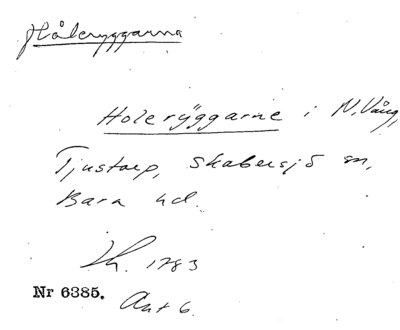 Håleryggarna
Hole rÿggarne i N. Vång,
Tjustorp, Skabersjö sn,
Bara hd.
Lh. 1783
Nr 6385.
Akt 6